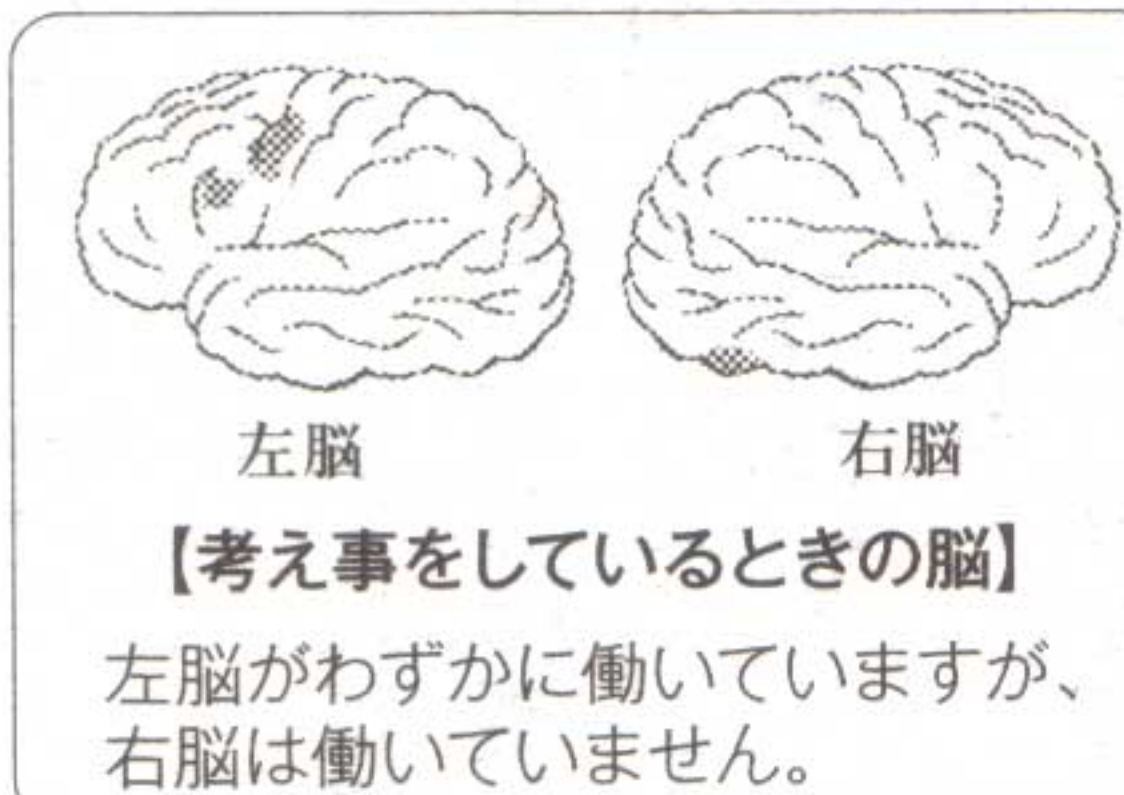 左脳
右脳
【考え事をしているときの脳】
左脳がわずかに働いていますが、
右脳は働いていません。